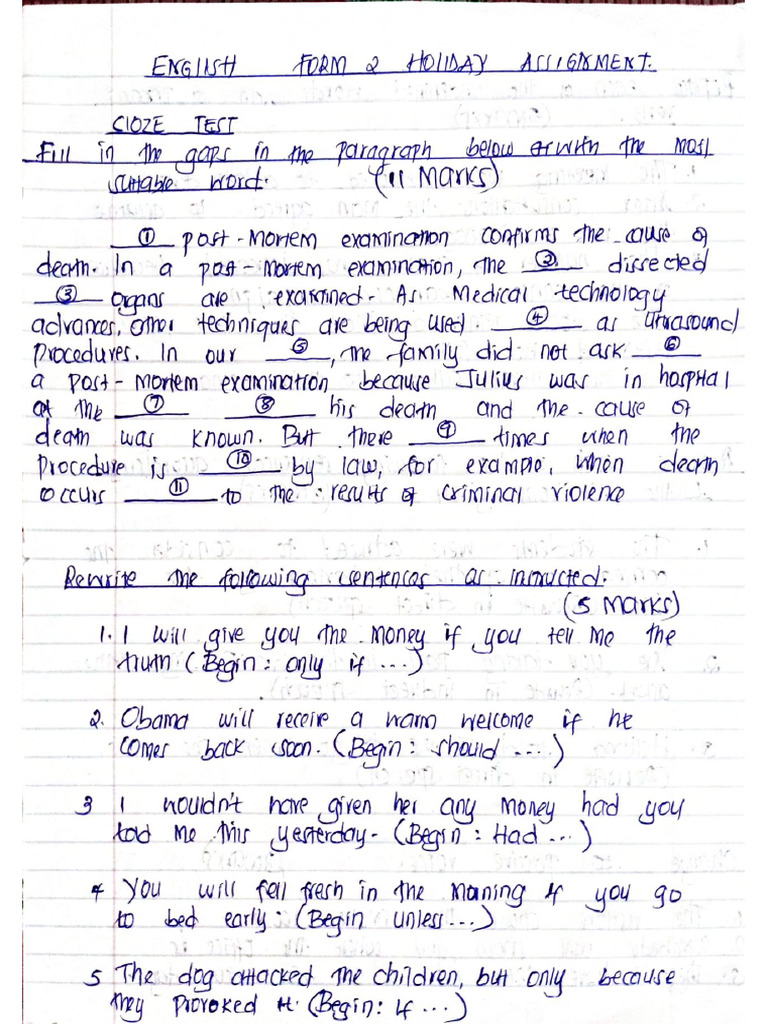 ENGLISH FORM 2 HOLIDAY ASSIGNMENT.
CLOZE TEST
Fill in the gaps in the paragraph below with the most
suitable word. (11 Marks)
① post-mortem examination confirms the cause of
death. In a post-mortem examination, the ② dissected
③ organs are examined. As Medical technology
advances, other techniques are being used. ④ as ultrasound
procedures. In our ⑤, the family did not ask ⑥
a post-mortem examination because Julius was in hospital
at the ⑦ ⑧ his death and the cause of
death was known. But there ⑨ times when the
procedure is ⑩ by law, for example, when death
occurs ⑪ to the results of criminal violence
Rewrite the following sentences as instructed.
(5 Marks)
1. I will give you the money if you tell me the
truth (Begin: only if ...)
2. Obama will receive a warm welcome if he
comes back soon. (Begin: should ...)
3 I wouldn't have given her any money had you
told me this yesterday- (Begin: Had ...)
4 You will fell fresh in the morning if you go
to bed early: (Begin unless...)
5 The dog attacked the children, but only because
they provoked it. (Begin: If ...)